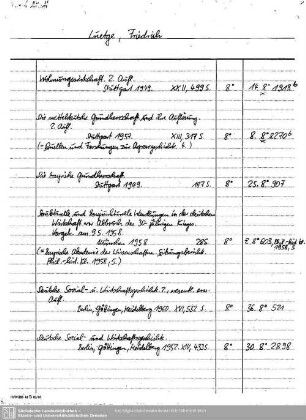 Luetge, Friedrich
Wohnungswirtschaft. 2. Aufl.
Stuttgart 1949. XXII, 499 S. 8° 14. 8° 1918 b
Die mitteldeutsche Grundherrschaft und ihre Auflösung.
2. Aufl.
Stuttgart 1957. XII, 317 S. 8° 8. 8° 8270 b
(= Quellen und Forschungen zur Agrargeschichte 4.)
Die bayrische Grundherrschaft.
Stuttgart 1949. 197 S. 8° 25. 8° 907
Strukturelle und konjunkturelle Wandlungen in der deutschen
Wirtschaft vor Ausbruch des 30-jährigen Krieges.
Vorgel. am 9.5.1958.
München 1958 28 S. 8°
(= Bayrische Akademie der Wissenschaften. Sitzungsberichte.
Phil.-hist. Kl. 1958, 5.)
Deutsche Sozial- u. Wirtschaftsgeschichte. 2., neubearb.
Aufl.
Berlin, Göttingen, Heidelberg 1960. XVI, 552 S. 8° 36. 8° 521
Deutsche Sozial- und Wirtschaftsgeschichte.
Berlin, Göttingen, Heidelberg 1952. XIV, 432 S. 8° 30. 8° 2898